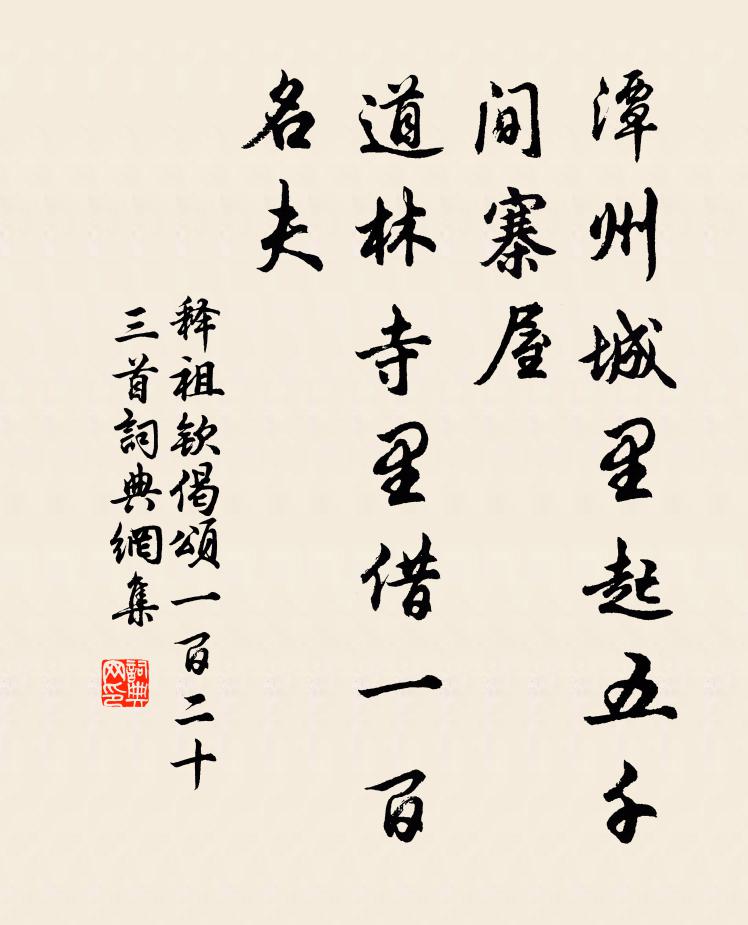 潭州城里起五千
间寨屋
道林寺里借一百
名夫
释祖钦偈颂一百二十
三首詞典網集
詞典网印